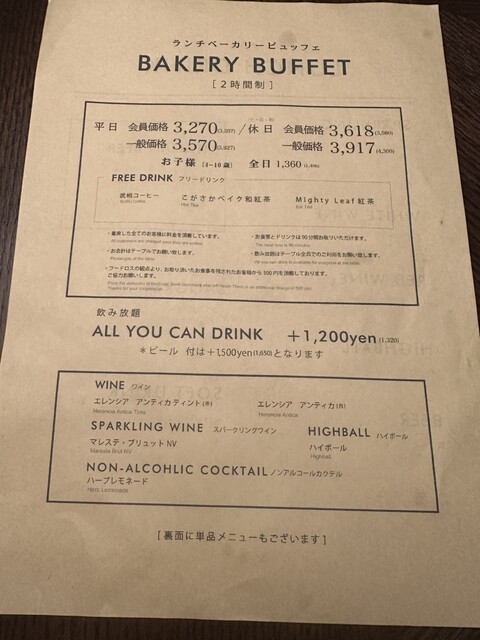 ランチベーカリービュッフェ
BAKERY BUFFET
[ 2時間制 ]
平日 会員価格 3,270(3,597) / 休日 会員価格 3,618(3,980)
一般価格 3,570(3,927) 一般価格 3,917(4,309)
お子様 (4-10歳) 全日 1,360
FREE DRINK フリードリンク
こがさかベイク和紅茶
Hot Tea
Mighty Leaf 紅茶
Ice Tea
・着席した全てのお客様に料金を頂戴しています。
・お会計はテーブルでお願い致します。
・フードロスの観点より、お取り頂いたお食事を残されたお客様から500円を頂戴しております。
ご協力お願いします。
・お食事とドリンクは90分間お取りいただけます。
・飲み放題はテーブル全員でのご利用をお願い致します。
飲み放題
ALL YOU CAN DRINK +1,200yen(1,320)
*ビール 付は+1,500yen(1,650)となります
WINE ワイン
エレンシア アンティカ ティント(赤) エレンシア アンティカ(白)
Herencia Antica Tinto Herencia Antica
SPARKLING WINE スパークリングワイン
マレステ・ブリュット NV
HIGHBALL ハイボール
ハイボール
Highball
NON-ALCOHLIC COCKTAIL ノンアルコールカクテル
ハーブレモネード
Herb Lemonade
[ 裏面に単品メニューもございます ]